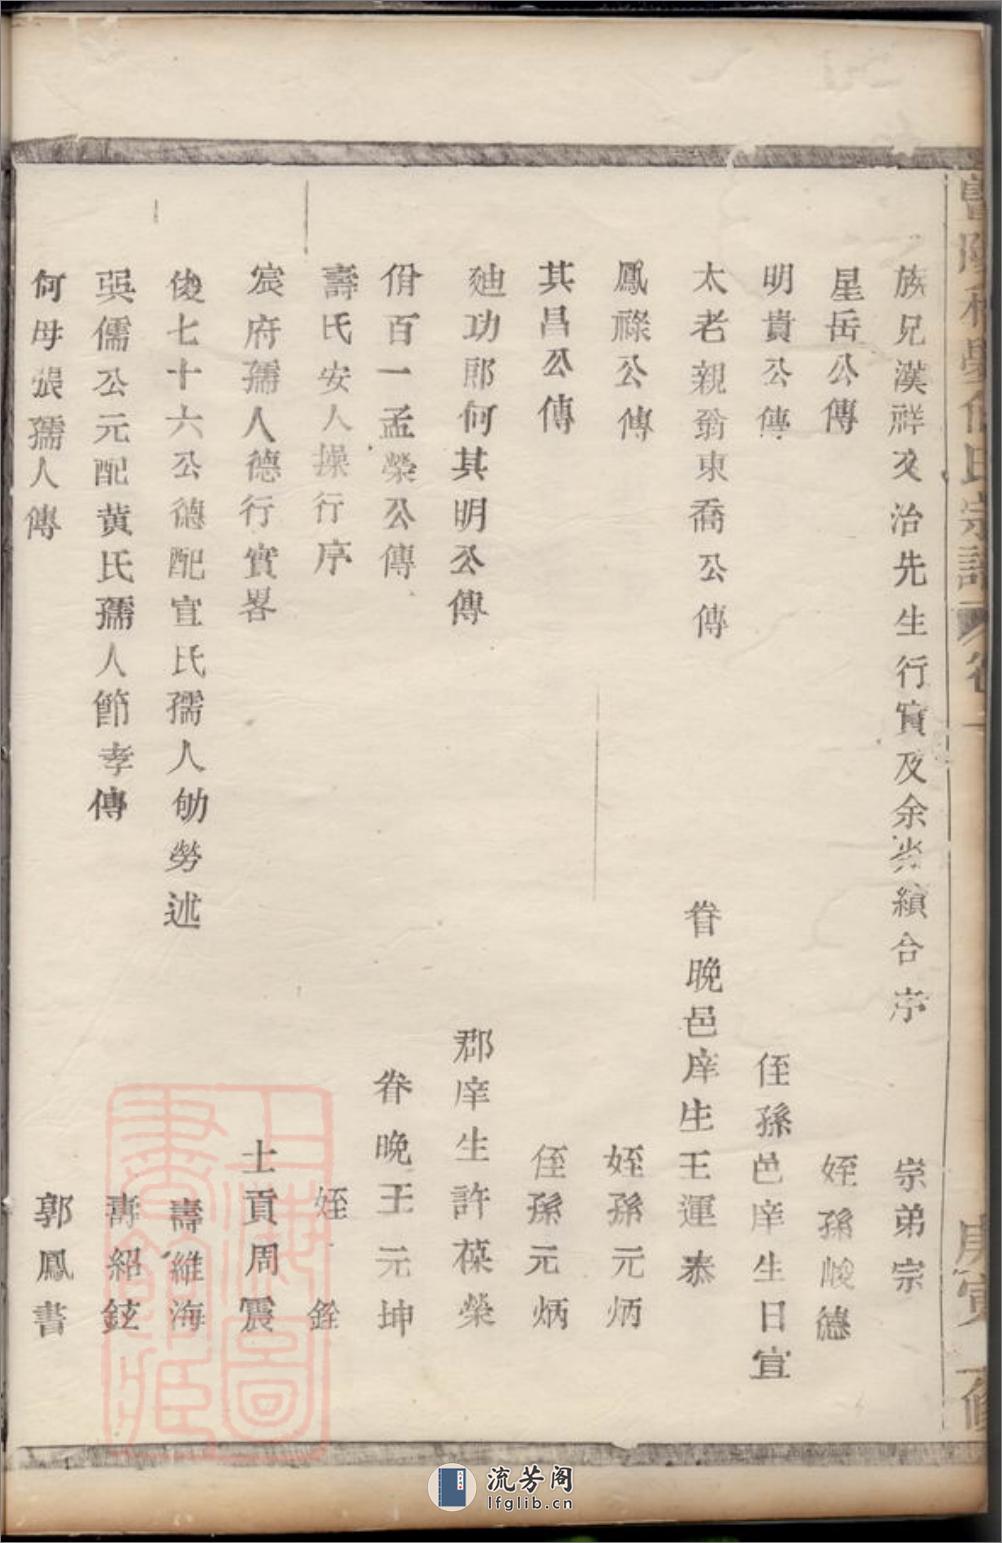 族兄漢祥友治先生行實及余勞績合序 崇弟宗
星岳公傳 姪孫峻德
明貴公傳 侄孫邑庠生日宣
太老親翁東喬公傳 眷晚邑庠生王運泰
鳳祿公傳 姪孫元炳
其昌公傳 侄孫元炳
廸功郎何其明公傳 郡庠生許葆榮
佾百一孟榮公傳 眷晚王元坤
壽氏安人操行序 姪銓
宸府孺人德行實畧 士貢周震
俊七十六公德配宣氏孺人劬勞述 壽維海
吳儒公元配黃氏孺人節孝傳 壽紹鉉
何母張孺人傳 郭鳳書
氏宗譜
庚寅
修
上海圖書館藏
流芳阁
lfglib.cn